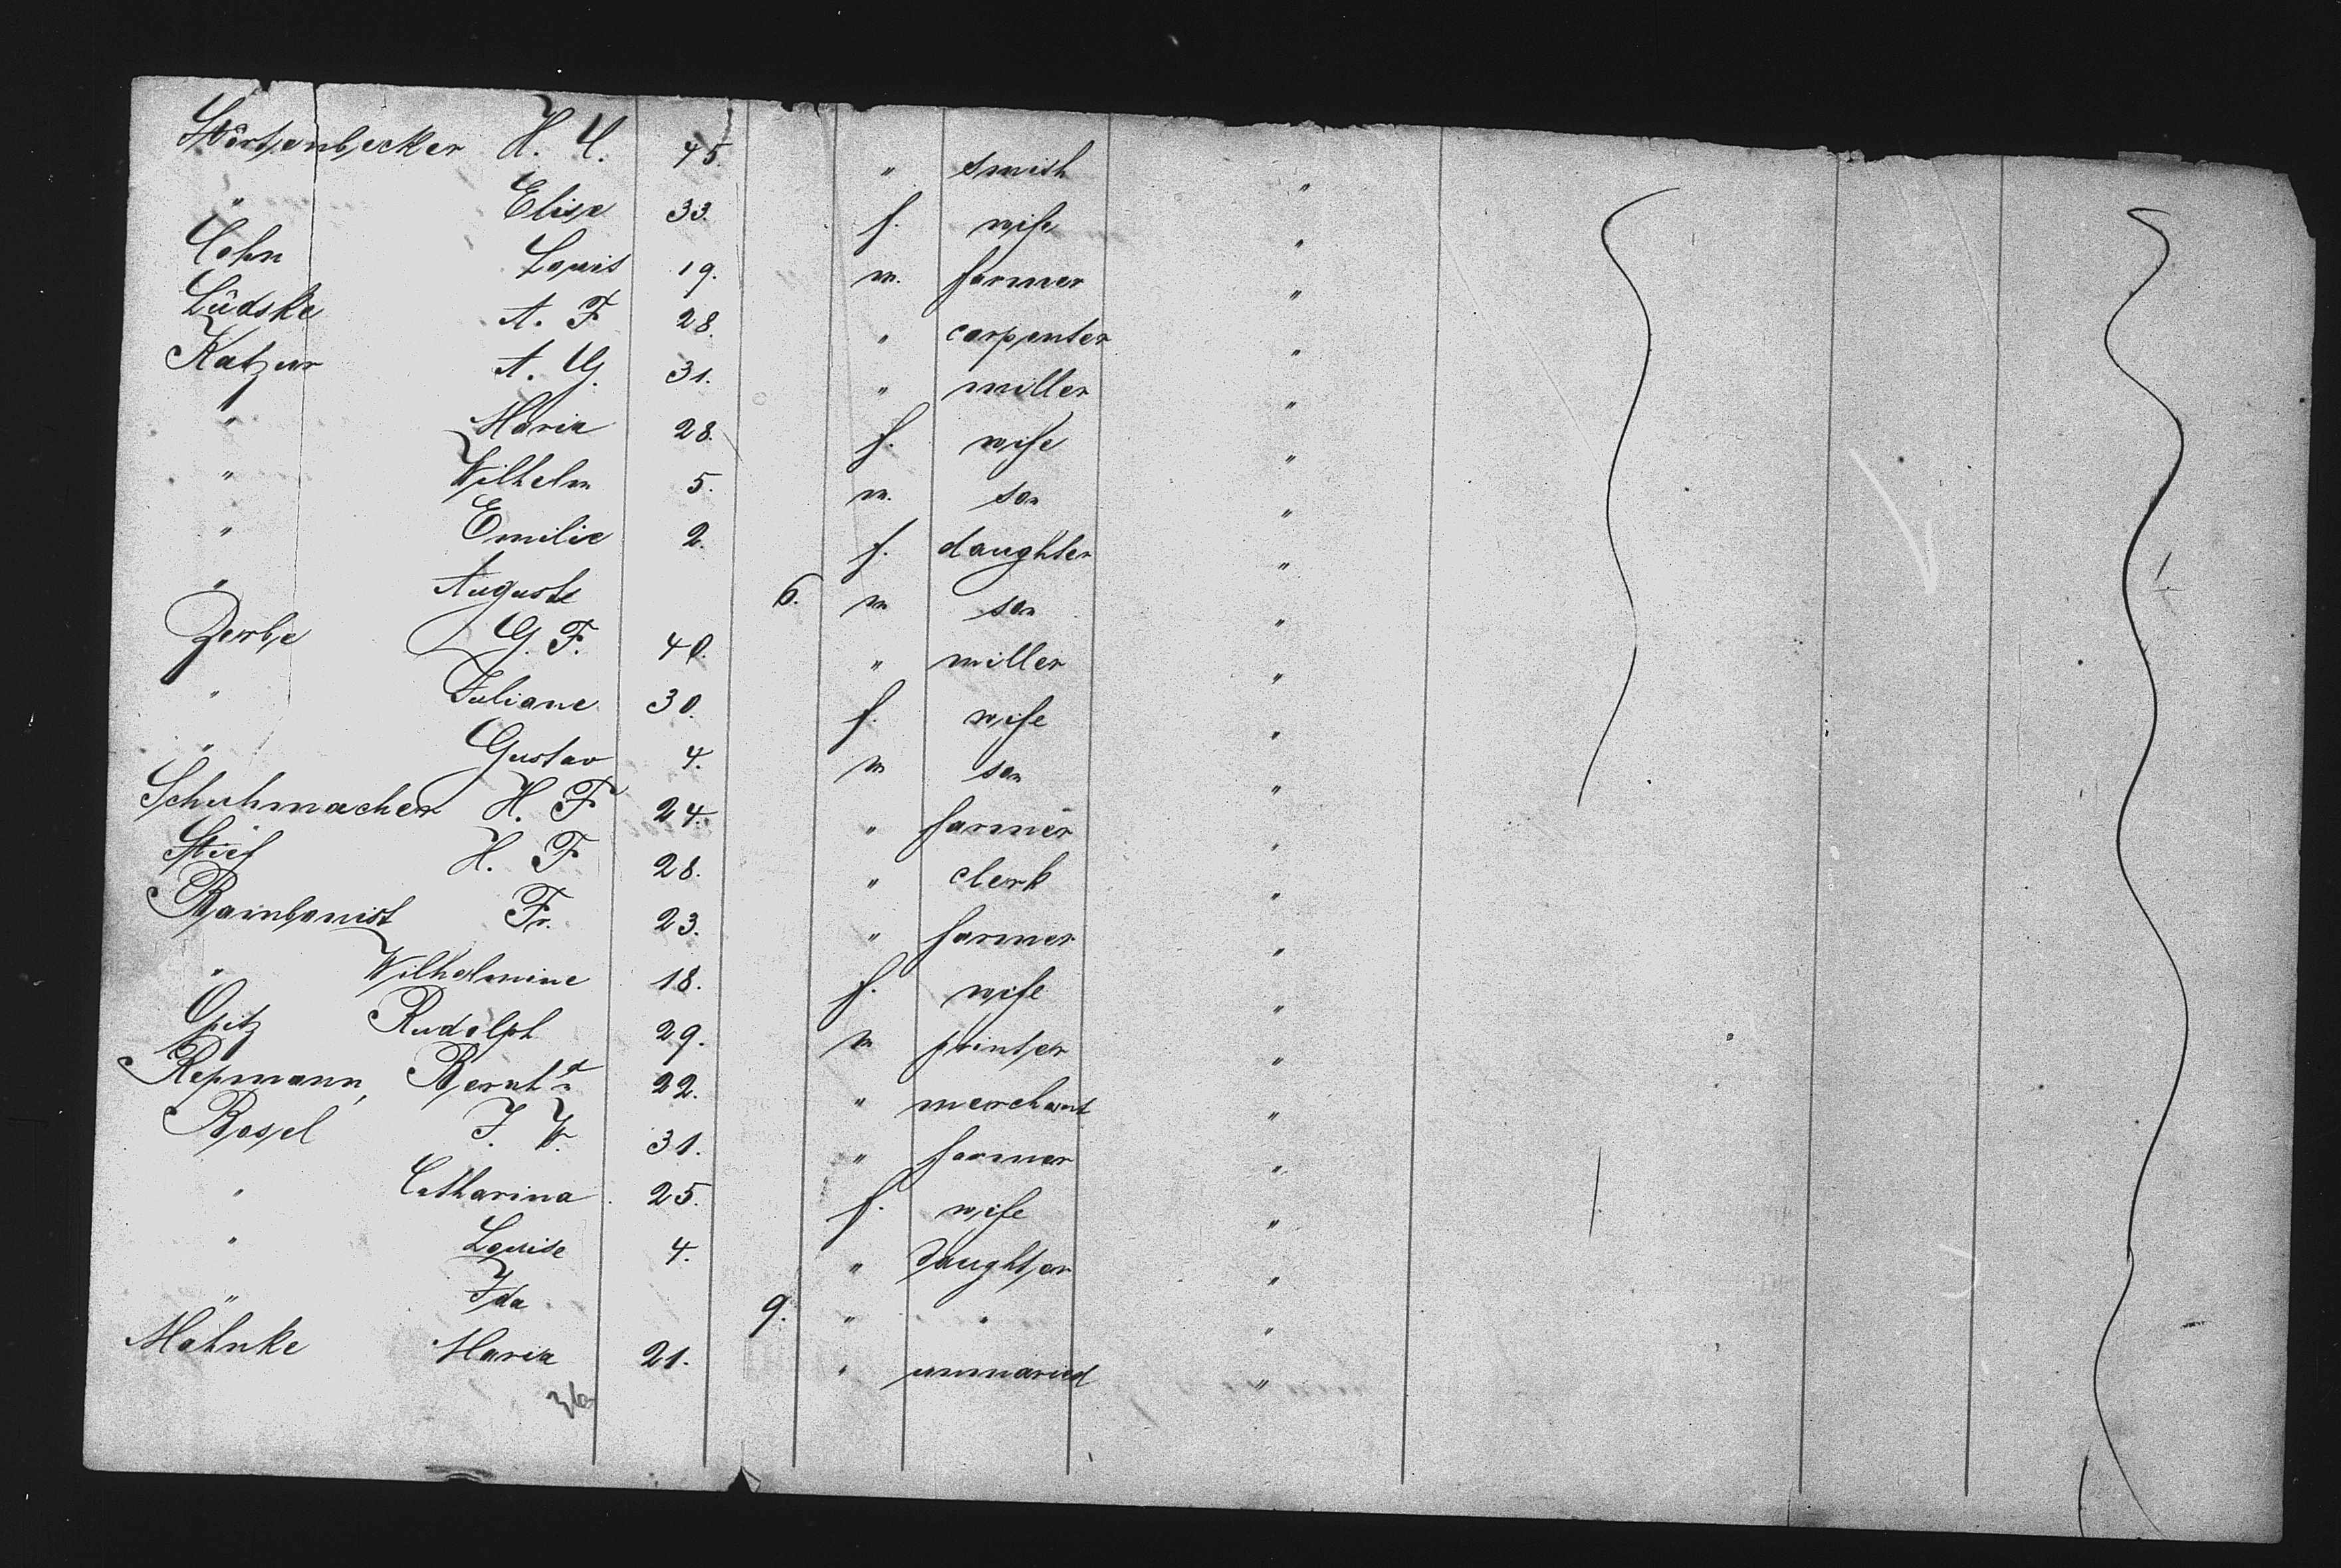 Störtzenbecker H. C. 45. " smith "
" Elise 33. f. wife "
Cohn Louis 19. m. farmer "
Lüdske A. F 28. " carpenter "
Katzur A. G. 31. " miller "
" Maria 28. f. wife "
" Wilhelm 5. m. son "
" Emilie 2. f. daughter "
" Auguste 6. m son "
Zerbe G. F. 40. " miller "
" Juliane 30. f. wife "
" Gustav 4. m son "
Schuhmacher H. F 24. " farmer "
Stief H. F 28. " clerk "
Fr. 23. " farmer "
" Wilhelmine 18. f. wife "
Opitz Rudolph 29. m printer "
Repmann, Bernhd 22. " merchant "
Bosel J. W. 31. " farmer "
" Catharina 25. f. wife "
" Louise 4. " daughter "
" Ida 9. " " "
Mahnke Maria 21. " unmaried "
36